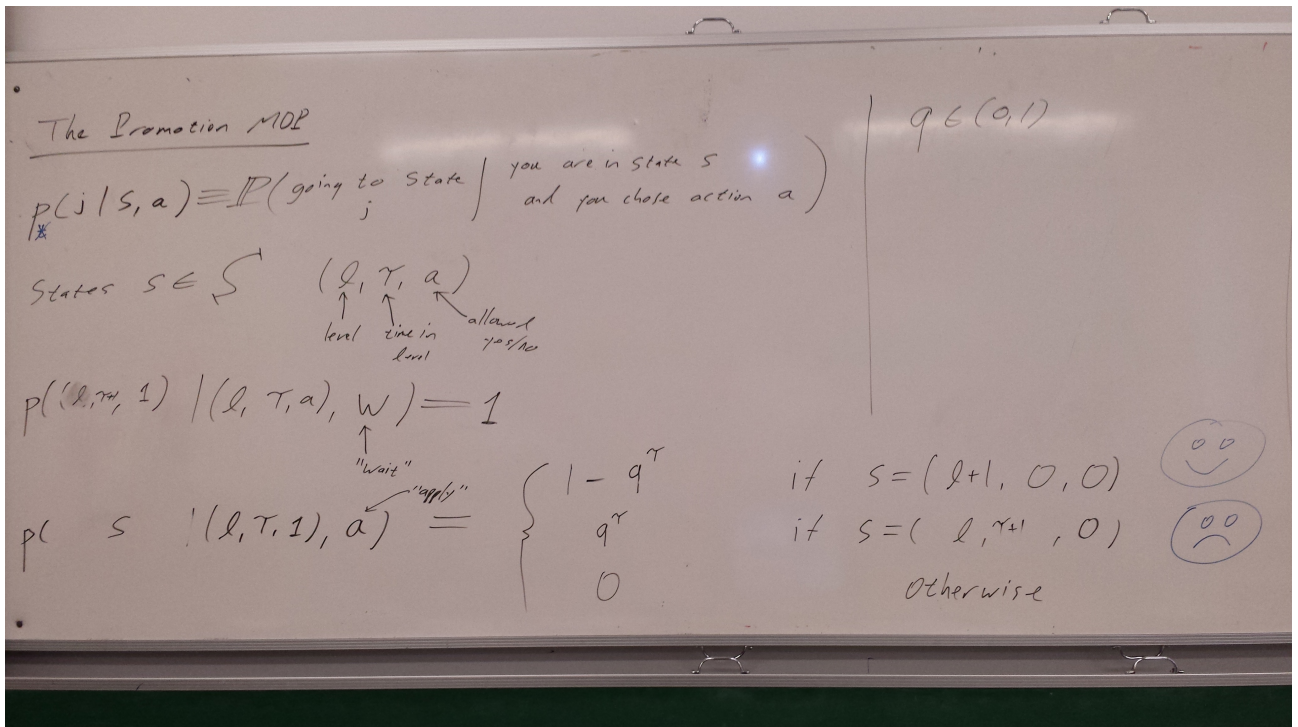 The Promotion MDP
q ∈ (0,1)
p(j | s, a) ≡ ℙ(going to state j | you are in state s and you chose action a)
States s ∈ S (l, τ, a)
level time in level allowed yes/no
p((l, τ+1, 1) | (l, τ, a), W) = 1
"wait"
"apply"
p( s | (l, τ, 1), a) = { 1 - q^τ if s = (l+1, 0, 0)
q^τ if s = ( l, τ+1 , 0)
0 otherwise